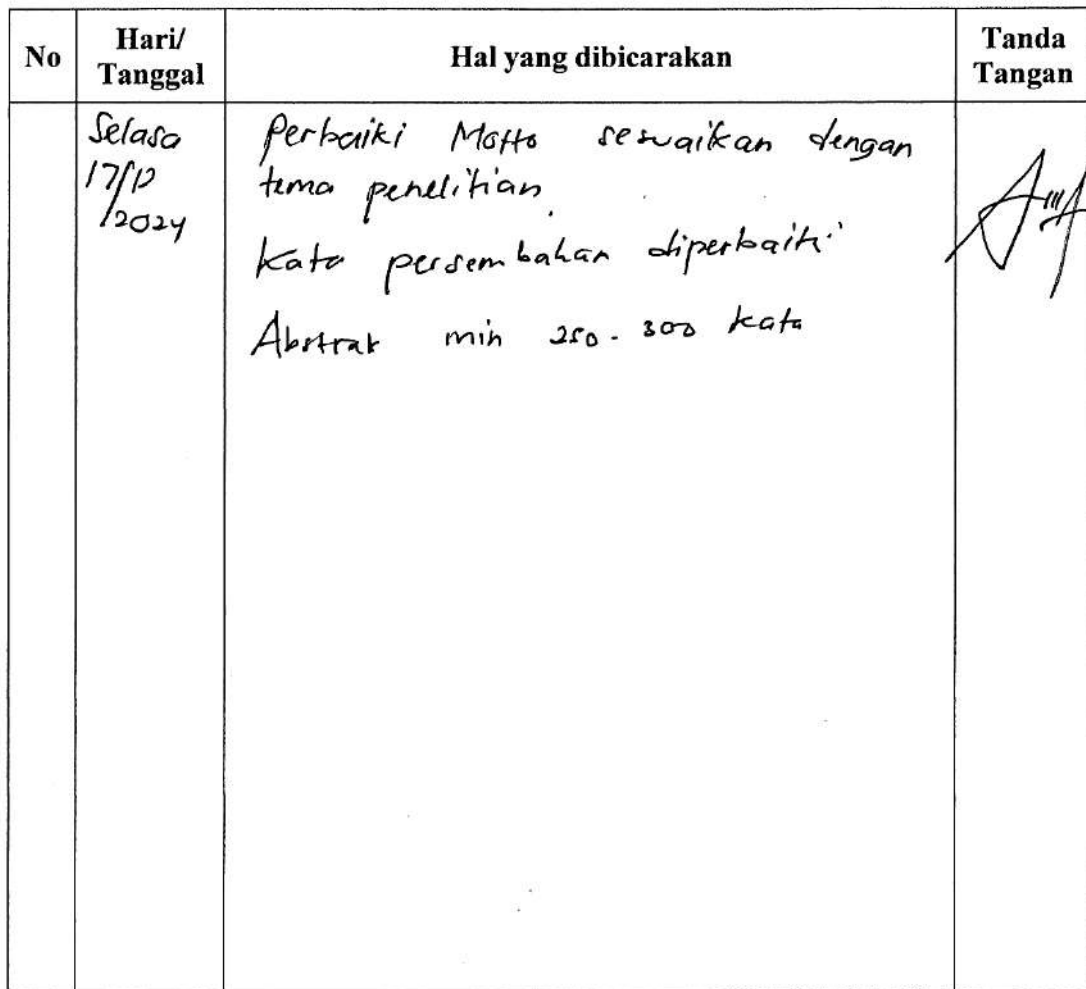 No
Hari/
Tanggal
Hal yang dibicarakan
Tanda
Tangan
Selasa
17/12
/2024
Perbaiki Motto sesuaikan dengan
tema penelitian
Kata persembahan diperbaiki
Abstrak min 250-300 kata